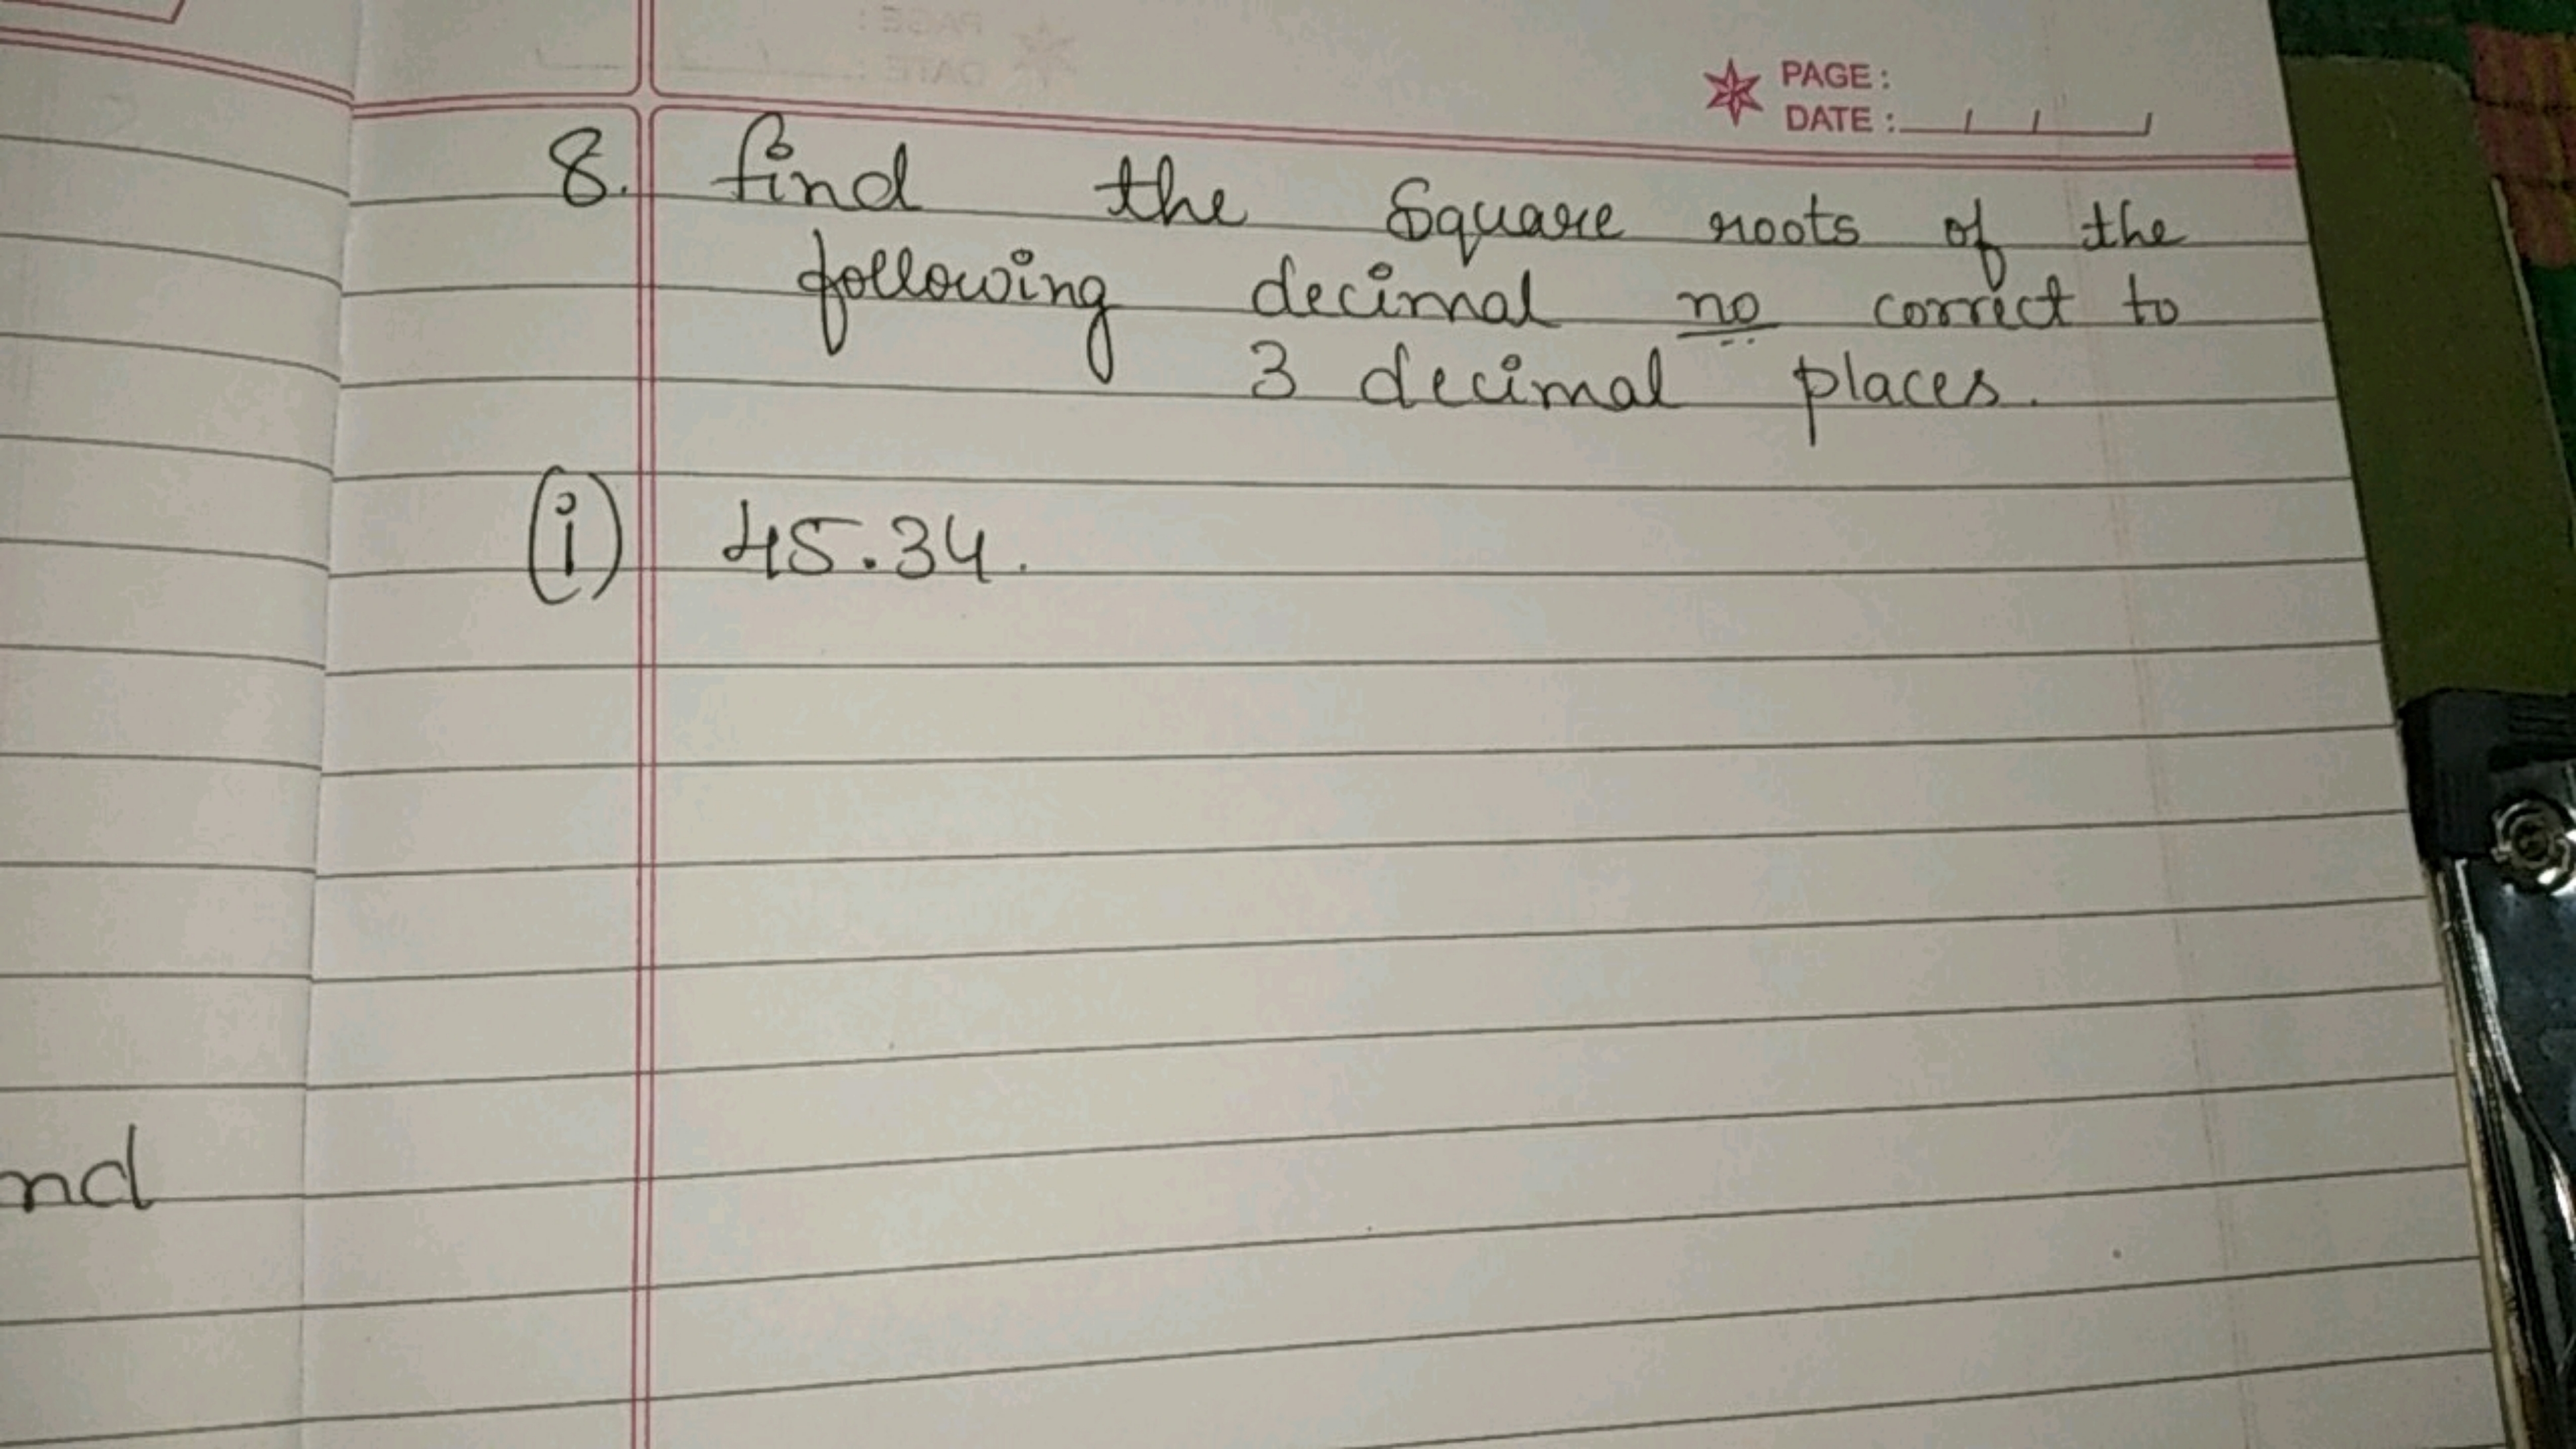 PAGE :
DATE :
8. find the Square roots of the
following decimal no correct to
3 decimal places.
(i) 45.34.
nd